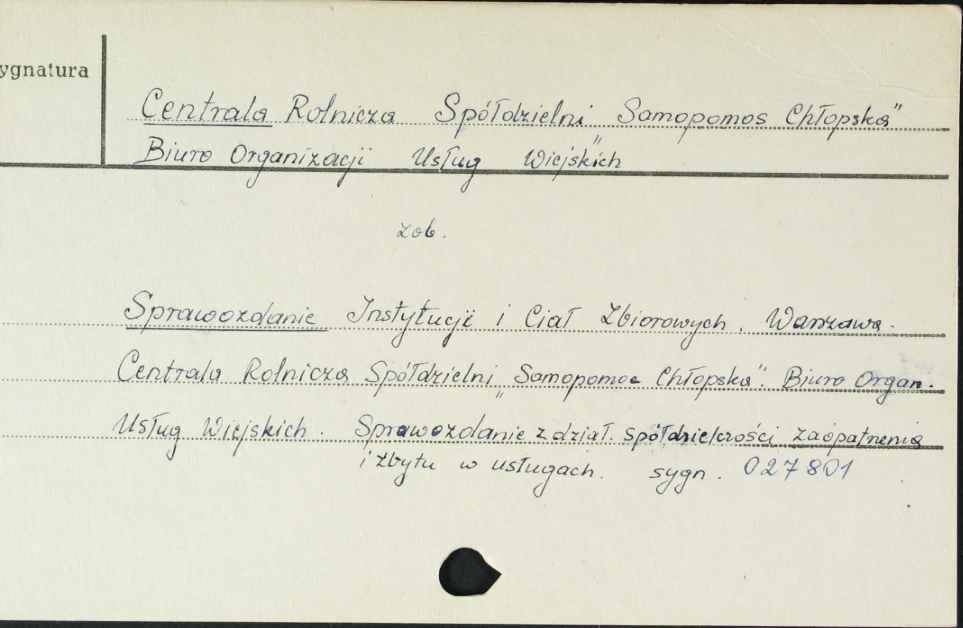 ygnatura
Centrala Rolnicza Spółdzielni „Samopomoc Chłopska"
Biuro Organizacji Usług Wiejskich
zob.
Sprawozdanie Instytucji i Ciał Zbiorowych. Warszawa.
Centrala Rolnicza Spółdzielni „Samopomoc Chłopska". Biuro Organ.
Usług Wiejskich. Sprawozdanie z dział. spółdzielczości zaopatrzenia
i zbytu w usługach. sygn. 027801